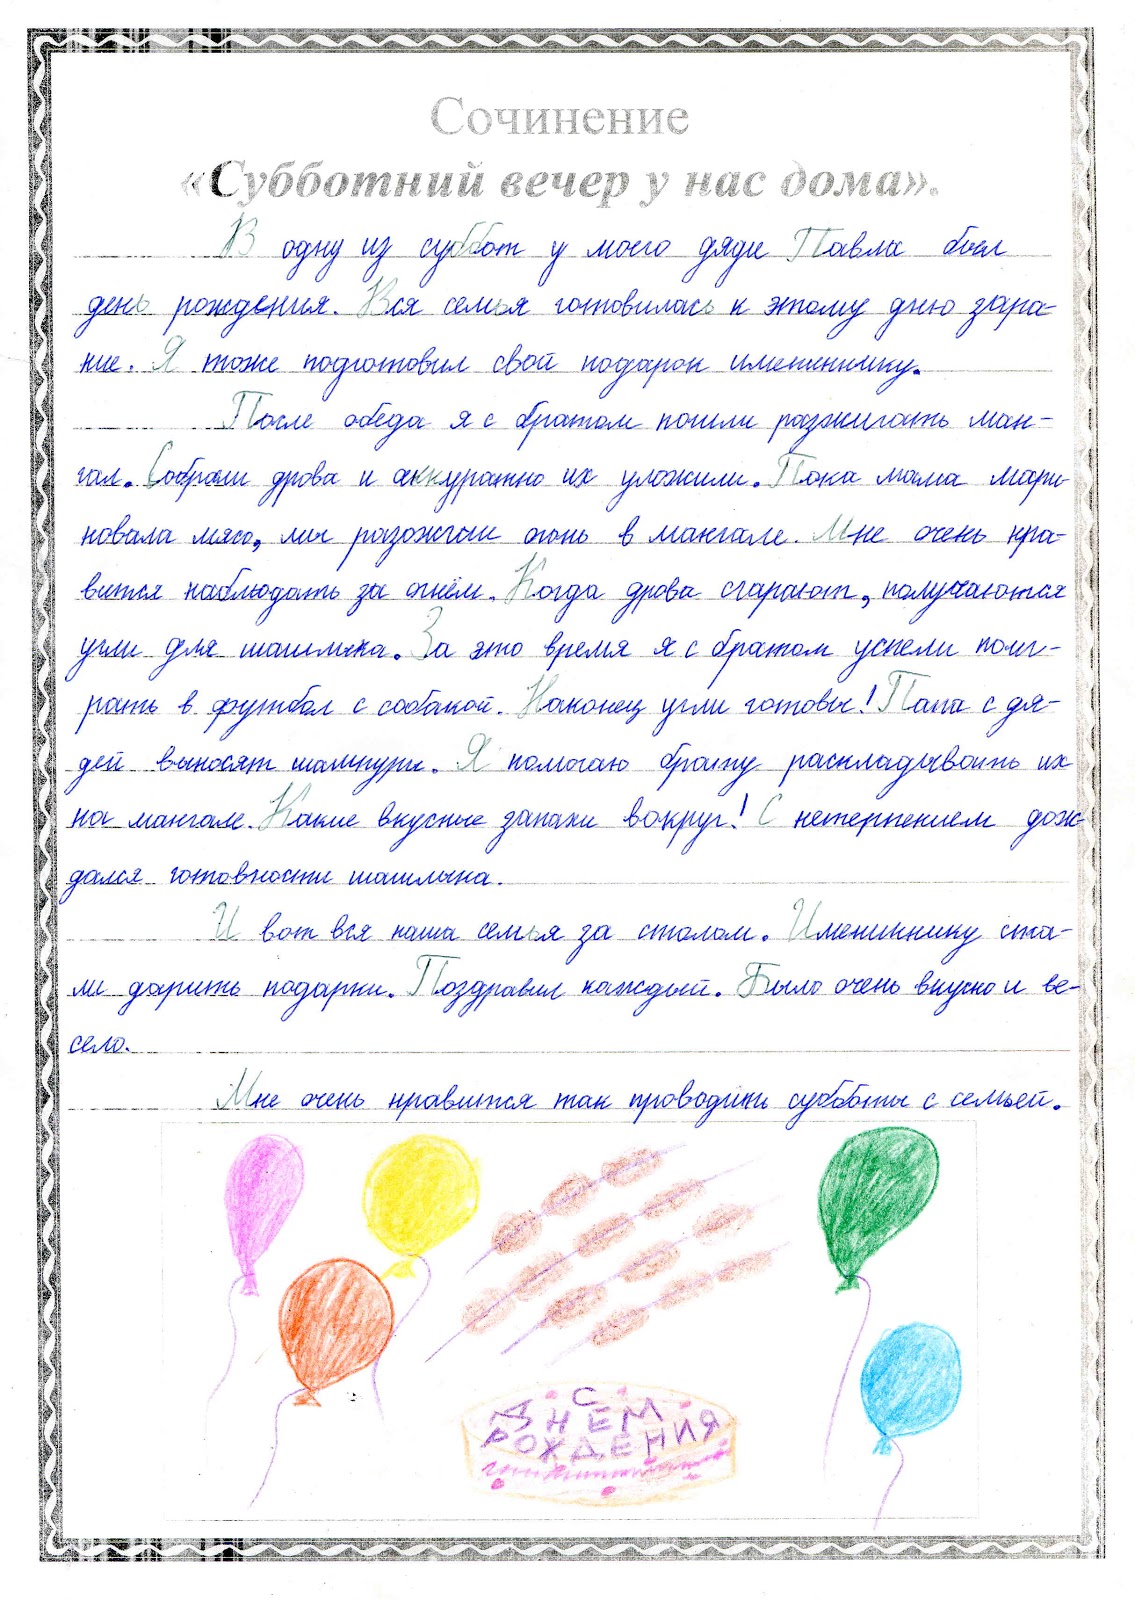 Сочинение
«Субботний вечер у нас дома».
В одну из суббот у моего дяди Павла был
день рождения. Вся семья готовилась к этому дню зара-
ние. Я тоже подготовил свой подарок имениннику.
После обеда я с братом пошли разжигать ман-
гал. Собрали дрова и аккуратно их уложили. Пока мама мари-
новала мясо, мы разожгли огонь в мангале. Мне очень нра-
вится наблюдать за огнём. Когда дрова сгарают, получаются
угли для шашлыка. За это время я с братом успели поиг-
рать в футбол с собакой. Наконец угли готовы! Папа с дя-
дей выносят шампуры. Я помогаю брату раскладывать их
на мангале. Какие вкусные запахи вокруг! С нетерпением дож-
дался готовности шашлыка.
И вот вся наша семья за столом. Имениннику ста-
ли дарить подарки. Поздравил каждый. Было очень вкусно и ве-
село.
Мне очень нравится так проводить субботы с семьей.
С
ДНЕМ
РОЖДЕНИЯ